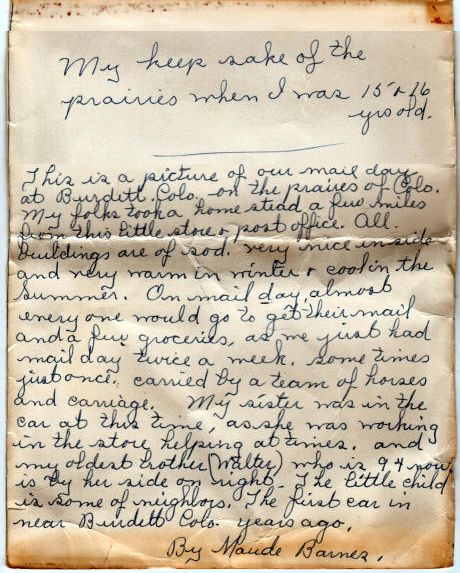 My keep sake of the
prairies when I was 15 + 16
yrs old.
This is a picture of our mail day
at Burdett, Colo. on the praires of Colo.
My folks took a home stead a few miles
from this little store + post office. All
buildings are of sod. very nice inside
and very warm in winter + cool in the
Summer. On mail day, almost
every one would go to get their mail
and a few groceries, as we just had
mail day twice a week. some times
just once. carried by a team of horses
and carriage. My sister was in the
car at this time, as she was working
in the store, helping at times. and
my oldest brother (Walter) who is 94 now
is by her side on right. The little child
is some of neighbors. The first car in
near Burdett Colo. years ago.
By Maude Barnes.